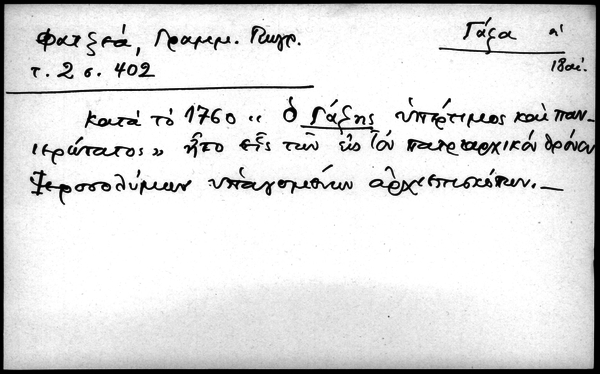 Φατζεά, Γραμμ. Πωγρ.
τ. 2 σ. 402
Γάζα α'
18 αἰ.
Κατὰ τὸ 1760 « ὁ Γάζης ὑπέρτιμος καὶ παν-
ιερώτατος » ἦτο εἷς τῶν εἰς τὸν πατριαρχικὸν θρόνον
Ἱεροσολύμων ὑπαγομένων ἀρχιεπισκόπων. —